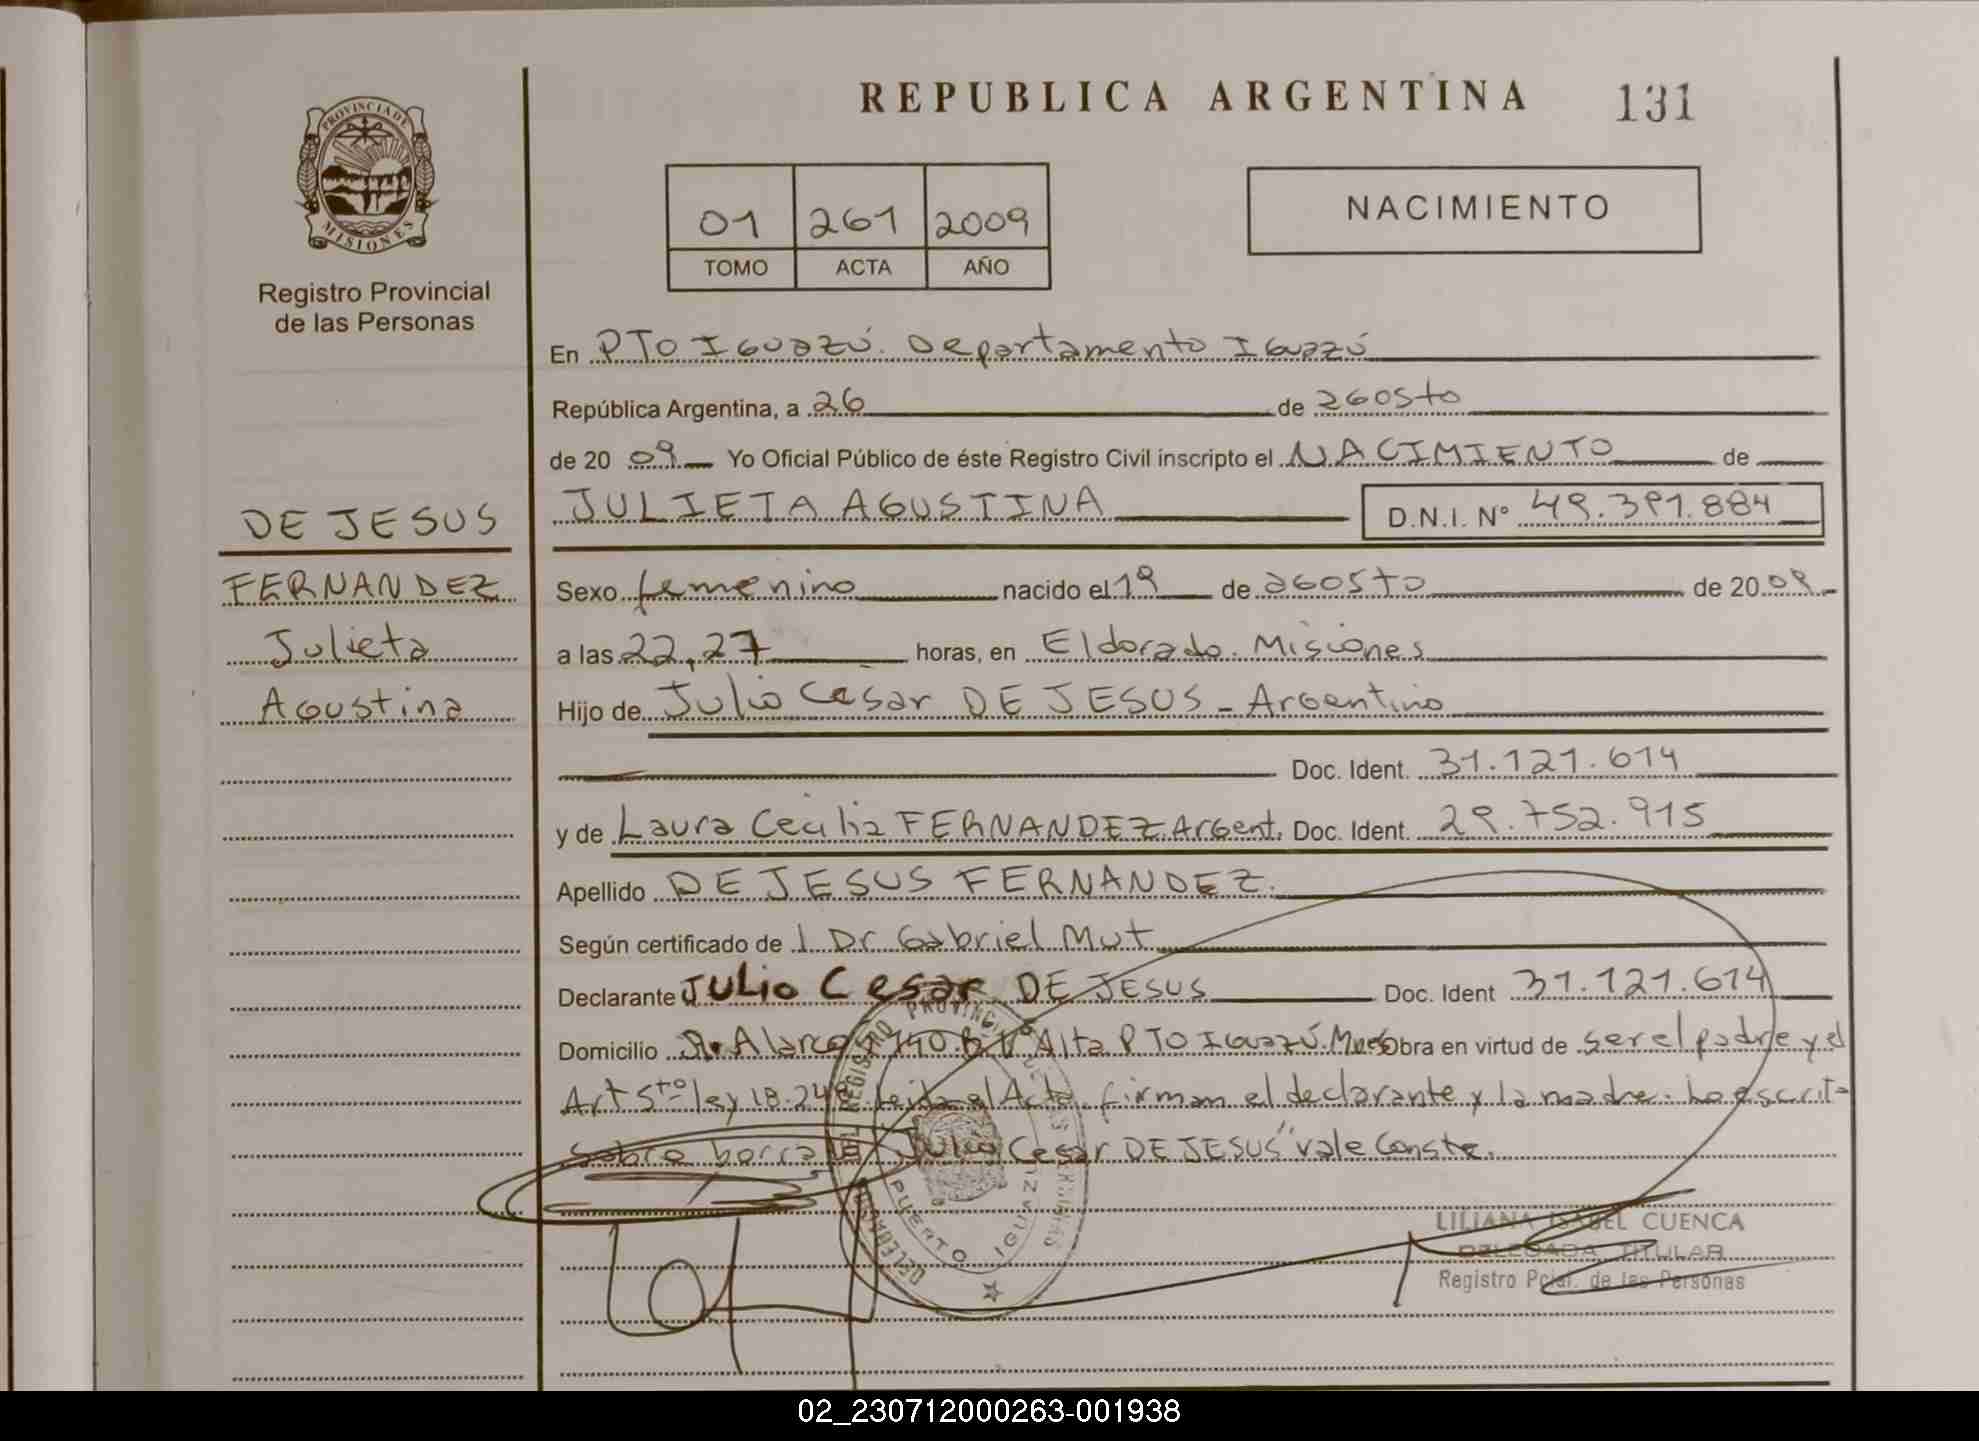 REPUBLICA ARGENTINA 131
PROVINCIA DE MISIONES
01 261 2009
TOMO ACTA AÑO
NACIMIENTO
Registro Provincial
de las Personas
En PTO IGUAZÚ. Departamento IGUAZÚ
República Argentina, a 26 de agosto
de 20 09 Yo Oficial Público de éste Registro Civil inscripto el NACIMIENTO de
JULIETA AGUSTINA D.N.I. Nº 49.391.884
DE JESUS
FERNANDEZ
Julieta
Agustina
Sexo femenino nacido el 19 de agosto de 20 09
a las 22,27 horas, en Eldorado. Misiones
Hijo de Julio Cesar DE JESUS - Argentino
Doc. Ident. 31.121.614
y de Laura Cecilia FERNANDEZ Argent. Doc. Ident. 29.752.915
Apellido DE JESUS FERNANDEZ.
Según certificado de Dr Gabriel Mut
Declarante JULIO Cesar DE JESUS Doc. Ident 31.121.614
Domicilio Alta PTO IGUAZÚ. Obra en virtud de ser el padre y el
Art 5to ley 18.248. Leida el Acta, firman el declarante y la madre. Lo escrito
sobre borrado "Julio Cesar DE JESUS" vale Conste.
REGISTRO PROVINCIAL DE LAS PERSONAS
PUERTO IGUAZU
LILIANA ISABEL CUENCA
DELEGADA TITULAR
Registro Pcial. de las Personas
02_230712000263-001938